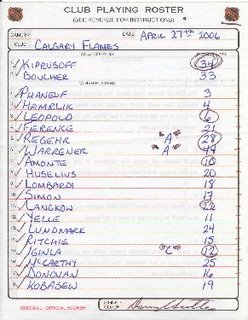 CLUB PLAYING ROSTER
(SEE REVERSE FOR INSTRUCTIONS)
DATE APRIL 27TH 2006
CLUB CALGARY FLAMES
KIPRUSOFF 34
BOUCHER 33
PHANEUF 3
HAMRLIK 4
LEOPOLD 6
FERENCE 21
REGEHR "A" 28
WARRENER "A" 44
AMONTE 10
HUSELIUS 20
LOMBARDI 18
SIMON 17
LANGKOW
YELLE 11
LUNDMARK 24
RITCHIE 15
IGINLA "C" 12
MCCARTHY 25
DONOVAN 16
KOBASEW 19
ORIGINAL - OFFICIAL SCORER